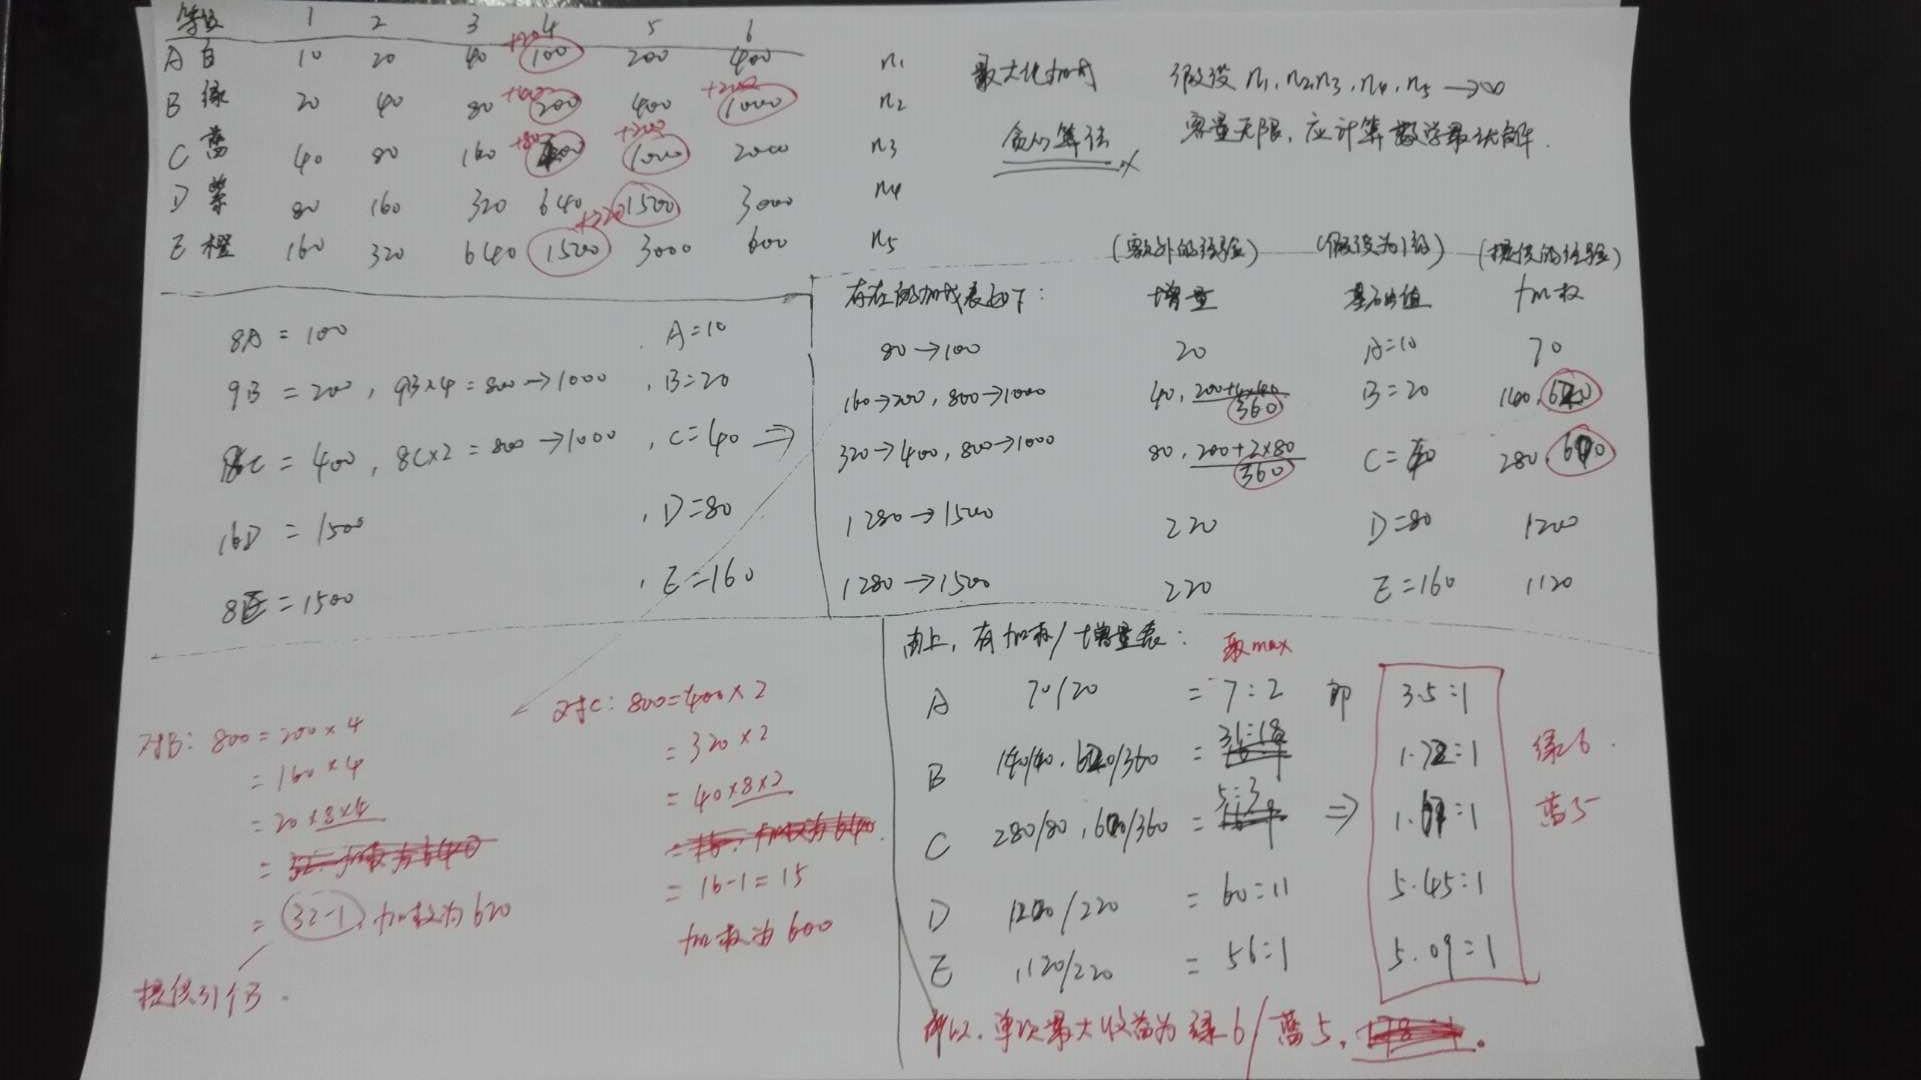 等级 1 2 3 4 5 6
A 白 10 20 40 +20 100 200 400 n1
B 绿 20 40 80 +40 200 400 +200 1000 n2
C 蓝 40 80 160 +80 400 +200 1000 2000 n3
D 紫 80 160 320 640 +220 1500 3000 n4
E 橙 160 320 640 1500 3000 600 n5
最大化加成 假设 n1, n2, n3, n4, n5 →∞
贪心算法 × 容量无限, 应计算数学最优解.
8A = 100 . A=10
9B = 200, 9B×4 = 800 → 1000 , B=20
8C = 400, 8C×2 = 800 → 1000 , C=40 ⇒
16D = 1500 , D=80
8E = 1500 , E=160
(额外的经验) (假设为1级) (提供的经验)
存在的加成表如下: 增量 基础值 加权
80→100 20 A=10 70
160→200, 800→1000 40, 200+4×40 360 B=20 140, 620
320→400, 800→1000 80, 200+2×80 360 C=40 280, 600
1280→1500 220 D=80 1200
1280→1500 220 E=160 1120
对B: 800=200×4
=160×4
=20×8×4
=32-1, 加权为620
提供31个B.
对C: 800=400×2
=320×2
=40×8×2
=16-1=15
加权为600
由上, 有加权/增量表: 取max
A 70/20 = 7:2 即 3.5:1
B 140/40, 620/360 = 31:18 1.72:1 绿6.
C 280/80, 600/360 = 5:3 ⇒ 1.67:1 蓝5
D 1200/220 = 60:11 5.45:1
E 1120/220 = 56:1 5.09:1
所以, 单次最大收益为 绿6/蓝5,